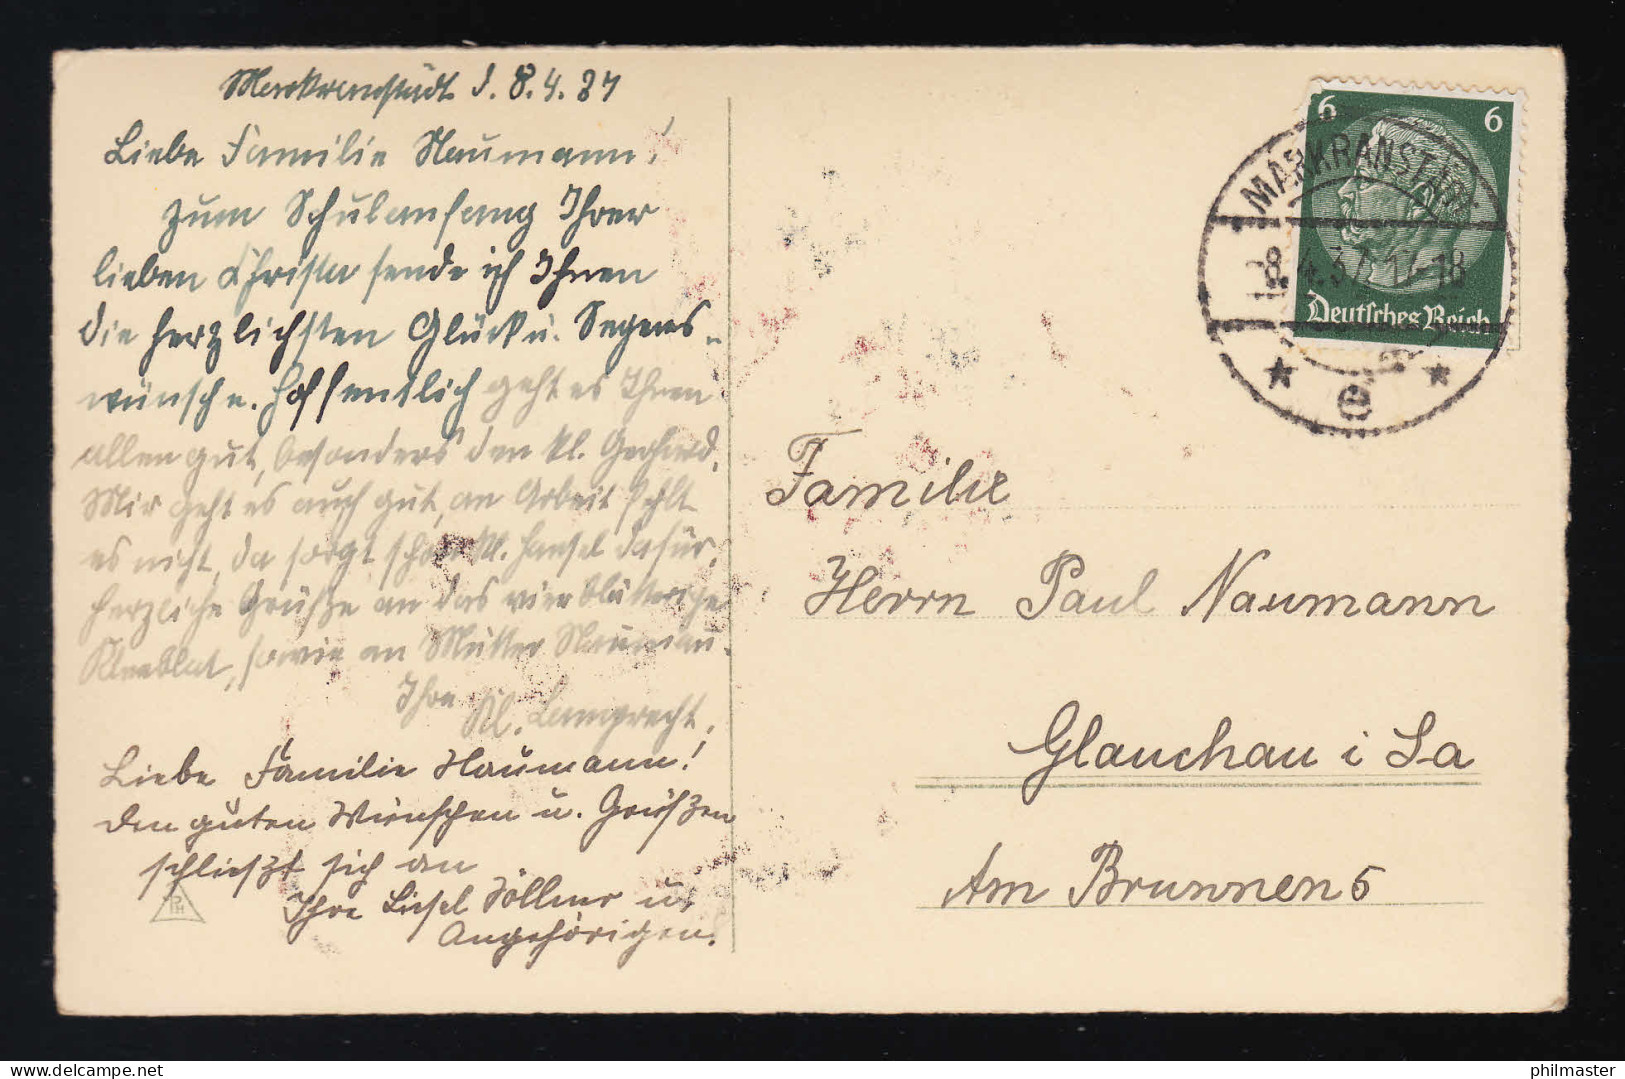 Markranstädt d. 8.4.37
Liebe Familie Naumann!
Zum Schulanfang Ihrer
lieben Christa sende ich Ihnen
die herzlichsten Glück u. Segens-
wünsche. Hoffentlich geht es Ihnen
allen gut, besonders den kl. Gerhard.
Mir geht es auch gut, an Arbeit fehlt
es nicht, da sorgt schon kl. Hansel dafür.
Herzliche Grüße an das vierblätterige
Kleeblat, sowie an Mutter Naumann.
Ihre Kl. Lamprecht.
Liebe Familie Naumann!
Den guten Wünschen u. Grüßen
schließt sich an
Ihre Liesel Söllner u.
Angehörigen.
PH
6 6
MARKRANSTÄDT
8.4.37.17-18
Deutsches Reich
* e *
Familie
Herrn Paul Naumann
Glauchau i Sa
Am Brunnen 5
philmaster